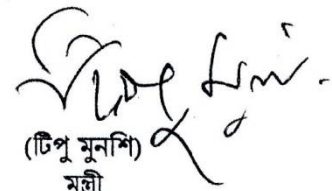 টিপু মুনশি
(টিপু মুনশি)
মন্ত্রী